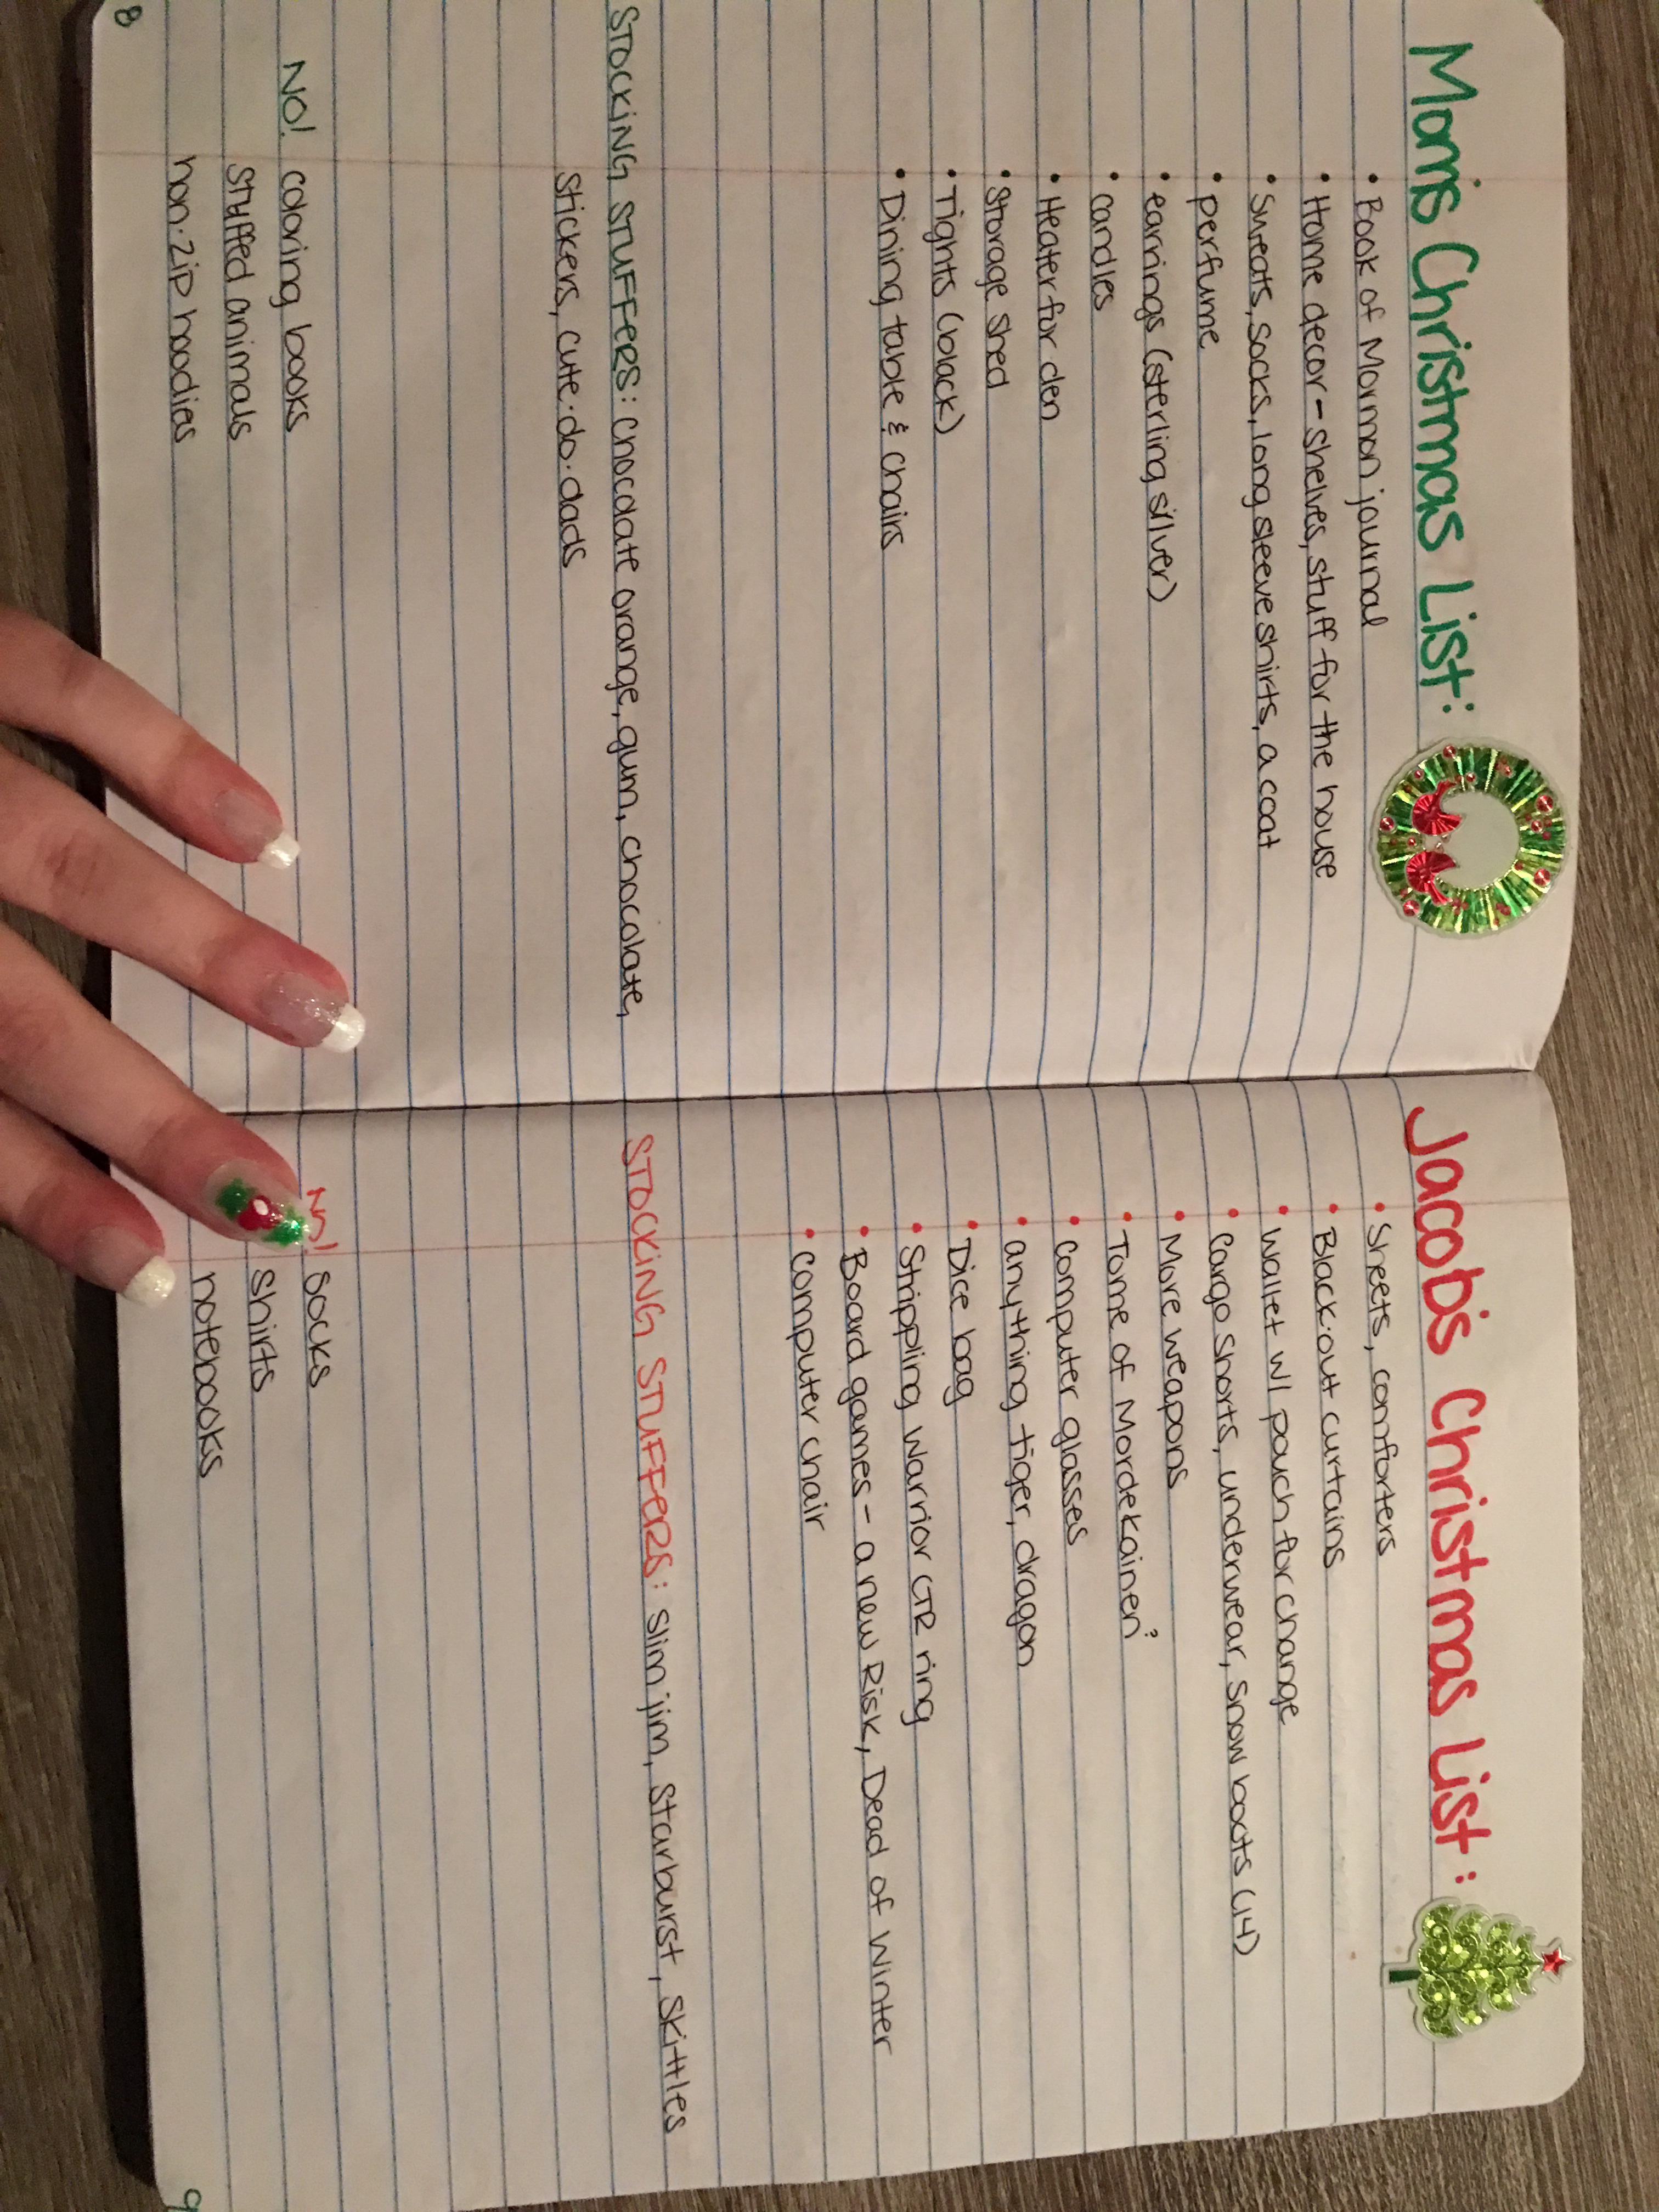 Mom's Christmas List:
• Book of Mormon journal
• Home decor - shelves, stuff for the house
• Sweats, socks, long sleeve shirts, a coat
• perfume
• earrings (sterling silver)
• candles
• Heater for den
• Storage shed
• Tights (black)
• Dining table & chairs
STOCKING STUFFERS: chocolate orange, gum, chocolate,
stickers, cute·do·dads
NO! coloring books
stuffed animals
non·zip hoodies
8
Jacob's Christmas List:
• Sheets, comforters
• Black·out curtains
• Wallet w/ pouch for change
• Cargo shorts, underwear, snow boots (14)
• More weapons
• Tome of Mordekainen?
• Computer glasses
• anything tiger, dragon
• Dice bag
• Strippling Warrior CTR ring
• Board games - a new Risk, Dead of Winter
• Computer chair
STOCKING STUFFERS: slim jim, Starburst, Skittles
socks
shirts
notebooks
9